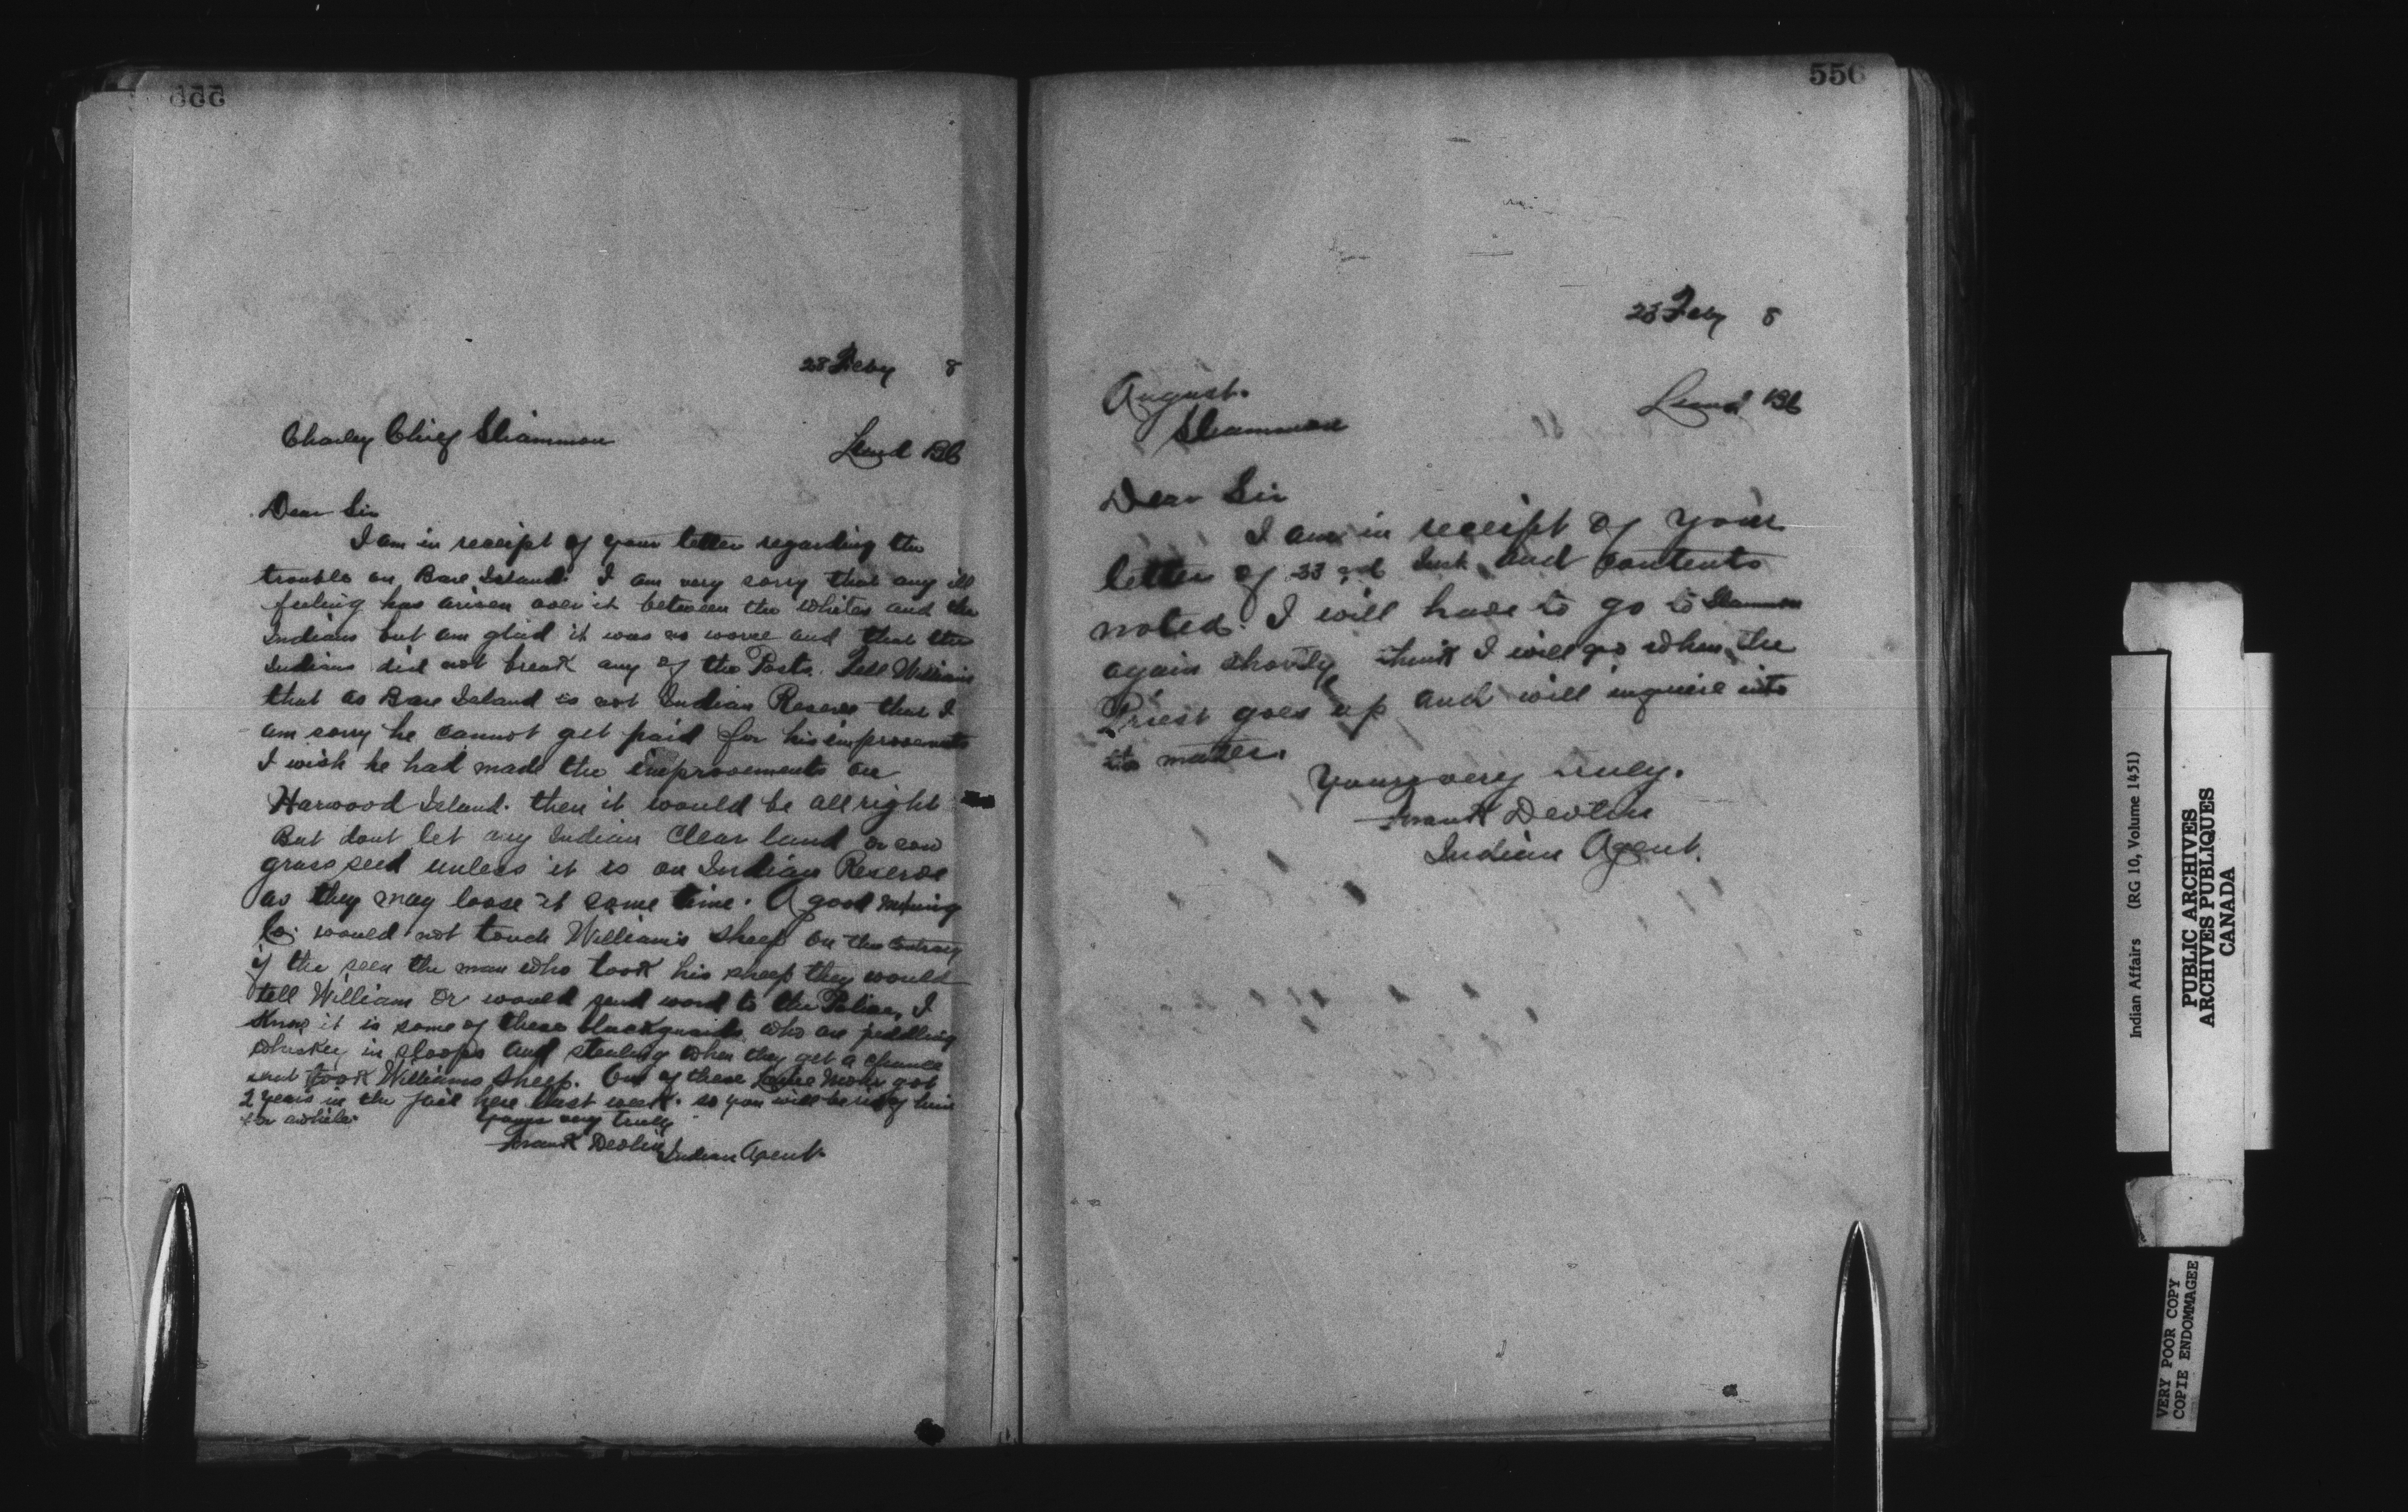 555
28 Feby 8
Charley Chief Sliammon
Lund BC
Dear Sir
I am in receipt of your letter regarding the
trouble on Bare Island. I am very sorry that any ill
feeling has arisen over it between the whites and the
Indians but am glad it was no worse and that the
Indians did not break any of the Posts. Tell William
that as Bare Island is not Indian Reserve that I
am sorry he cannot get paid for his improvements
I wish he had made the improvements on
Harwood Island. then it would be all right
But dont let any Indian Clear land or sow
grass seed unless it is on Indian Reserve
as they may loose it some time. A good
Co. would not touch William's sheep on the contrary
if the seen the man who took his sheep they would
tell William or would send word to the Police, I
Know it is some of these blackguards who are peddling
whiskey in sloops and stealing when they get a chance
that took Williams sheep. One of these got
2 years in the jail here last week. so you will be rid of him
for awhile.
Yours very truly
Frank Devlin Indian Agent.
556
28 Feby 8
August.
Sliammon
Lund BC
Dear Sir
I am in receipt of your
letter of 23rd Inst and contents
noted. I will have to go to Sliammon
again shortly think I will go when the
Priest goes up and will inquire into
matter.
Yours very truly.
Frank Devlin
Indian Agent.
Indian Affairs (RG 10, Volume 1451)
PUBLIC ARCHIVES
ARCHIVES PUBLIQUES
CANADA
VERY POOR COPY
COPIE ENDOMMAGEE